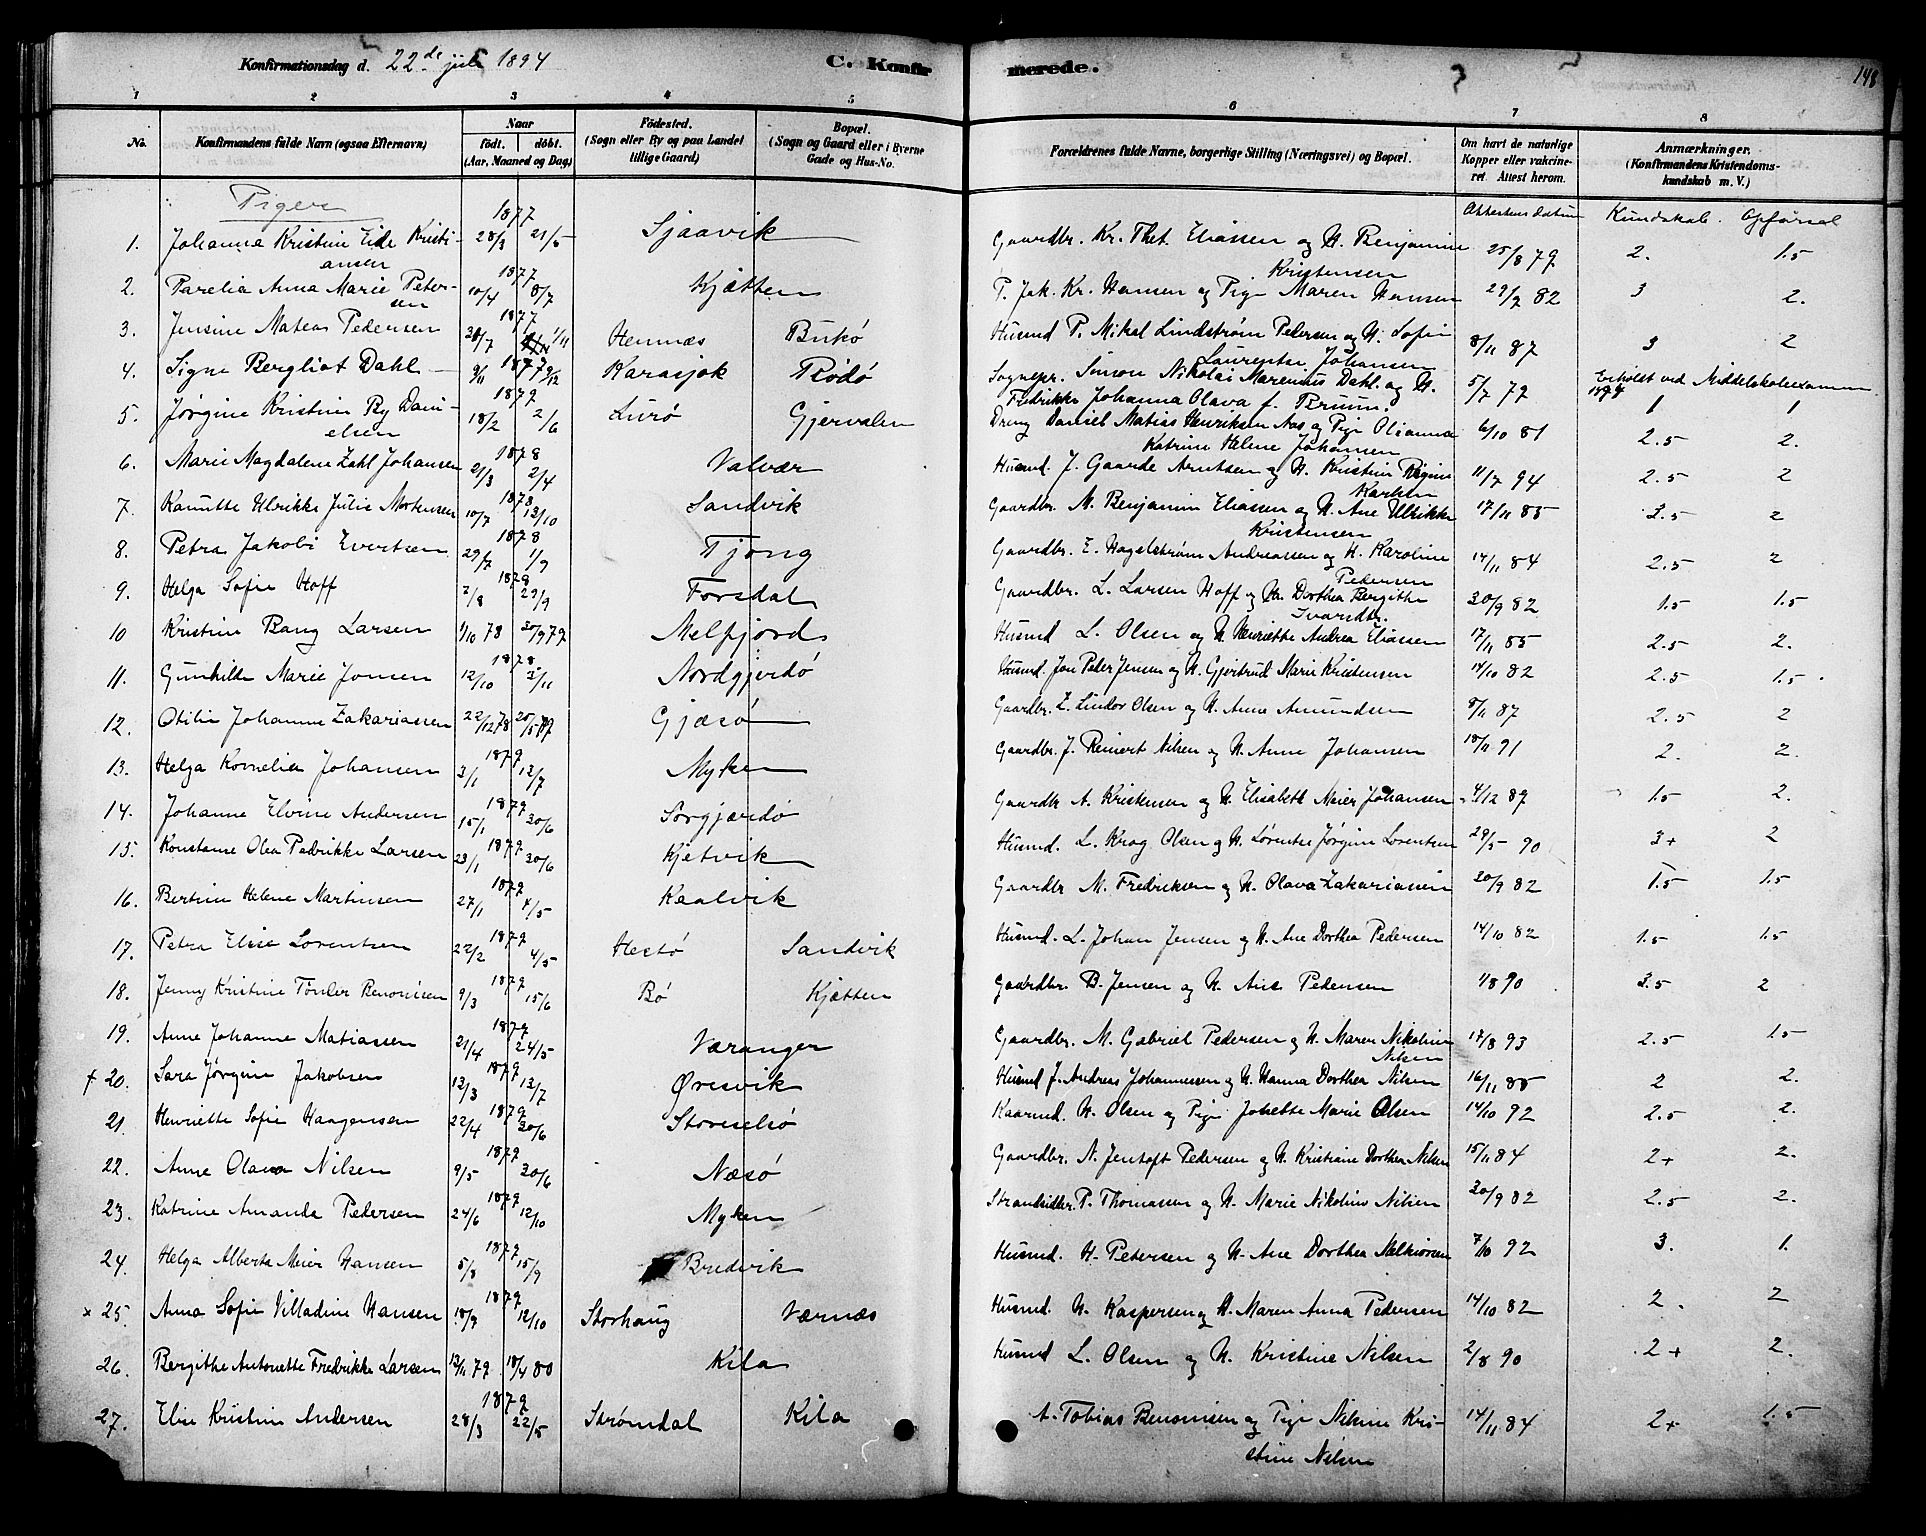 Konfirmationsdag d. 22de juli 1894 C. Konfirmerede. 148
1 2 3 4 5 6 7 8
No. Konfirmandens fulde Navn (ogsaa Efternavn) Naar födt. döbt. (Aar, Maaned og Dag) Födested. (Sogn eller By og paa Landet tillige Gaard) Bopæl. (Sogn og Gaard eller i Byerne Gade og Hus-No. Forældrenes fulde Navne, borgerlige Stilling (Næringsvei) og Bopæl. Om havt de naturlige Kopper eller vakcineret. Attest herom. Anmærkninger. (Konfirmandens Kristendomskundskab m. V.)
Piger Attestens datum Kundskab. Opførsel
1. Johanna Kristine Eide Kristiansen 1877 28/3 21/5 Sjaavik Gaardbr. Kr. Thet. Eliassen og H. Benjamine Kristensen 25/8 79 2. 1.5
2. Parelia Anna Marie Petersen 1877 10/4 8/7 Kjætten P. Jak. Kr. Hansen og Pige Maren Hansen 29/9 82 3 2.
3. Jensine Mateas Pedersen 1877 30/7 1/11 Hemnæs Bukø Husmd P. Mikal Lindstrøm Pedersen og H. Sofie Laurentse Johansen 8/11 87 3 2
4. Signe Bergliot Dahl 1877 9/11 9/12 Karasjok Rödö Sognepr. Simon Nikolai Marenius Dahl og H. Fredrikke Johanna Olava f. Bruun. 5/7 79 Erholdt ved Middelskoleexamen 1894 1 1
5. Jørgine Kristine By Danielsen 1879 18/2 2/6 Lurø Gjervalen Dreng Daniel Matias Henriksen Aas og Pige Olianna Katrine Helene Johansen 6/10 81 2.5 2.
6. Marie Magdalene Zahl Johansen 1878 21/3 2/4 Valvær Husmd. J. Gaarde Arntsen og H. Kristine Regine Karlsen 11/7 94 2.5 2
7. Kanutte Ulrikke Julie Mortensen 1878 10/7 13/10 Sandvik Gaardbr. M. Benjamin Eliassen og H. Ane Ulrikke Kristensen 17/11 85 3.5 2
8. Petra Jakobi Evertsen 1878 29/7 1/9 Tjong Gaardbr. E. Hagelstrøm Andreassen og H. Karoline Pedersen 14/11 84 2.5 2
9. Helga Sofie Hoff 1878 2/8 29/9 Forsdal Gaardbr. L. Larsen Hoff og H. Dorthea Bergithe Ivarsdtr. 30/9 82 1.5 1.5
10 Kristine Bang Larsen 1/10 78 20/9 79 Melfjord Husmd L. Olsen og H. Henriette Andrea Eliassen 17/11 85 2.5 2.
11. Gunhilde Marie Jonsen 1878 12/10 3/11 Nordgjerdø Husmd. Jon Peter Jensen og H. Gjertrud Marie Kristensen 14/10 82 2.5 1.5
12. Otilie Johanne Zakariassen 22/12 78 25/5 79 Gjæsø Gaardbr. Z. Lindor Olsen og H. Anne Amundsen 8/11 87 2.5 2
13. Helga Kornelia Johansen 1879 3/1 13/7 Myken Gaardbr. J. Reinert Nilsen og H. Anne Johansen 18/11 91 2. 2.
14. Johanne Elvine Andersen 1879 15/1 30/6 Sørgjærdø Gaardbr A. Kristensen og H. Elisabeth Meier Johansen 4/12 89 1.5 2.
15. Konstanse Olea Pedrikke Larsen 1879 23/1 30/6 Kjetvik Husmd. L. Krog Olsen og H. Lørentse Jørgine Lorentsen 29/5 90 3+ 2
16. Bertine Helene Martinsen 1879 27/1 4/5 Kaalvik Gaardbr M. Fredriksen og H. Olava Zakariassen 30/9 82 1.5 1.5
17. Petra Elise Lorentsen 1879 22/2 4/5 Hestø Sandvik Husmd. L. Johan Jensen og H. Ane Dorthea Pedersen 14/10 82 1.5 1.5
18. Jenny Kristine Tönder Benonisen 1879 9/3 15/6 Bö Kjætten Gaardbr. B. Jensen og H. Ane Pedersen 1/8 90 3.5 2
19. Anne Johanne Matiassen 1879 21/4 24/5 Varanger Gaardbr. M. Gabriel Pedersen og H. Maren Nikoline Nilsen 17/8 93 2.5 1.5
+ 20. Sara Jørgine Jakobsen 1879 13/3 13/7 Øresvik Husmd J. Andreas Johannessen og H. Hanna Dorthea Nilsen 16/11 88 2 2.
21. Henriette Sofie Haagensen 1879 22/4 30/6 Storselsø Kaarmd. H. Olsen og Pige Johette Marie Olsen 14/10 92 2.5 2.
22. Anne Olava Nilsen 1879 9/5 30/6 Næsö Gaardbr. N. Jentoft Pedersen og H. Kristiane Dorthea Nilsen 15/11 84 2+ 2.
23. Katrine Amanda Pedersen 1879 24/6 12/10 Myken Strandsidder. P. Thomassen og H. Marie Nikoline Nilsen 30/9 82 2.5 2.
24. Helga Alberta Meier Hansen 1879 5/8 15/9 Bredvik Husmd. H. Petersen og H. Ane Dorthea Melkiorsen 7/10 92 3. 1.
x 25. Anna Sofie Villadine Hansen 1879 18/9 12/10 Storhaug Værnæs Husmd. H. Kaspersen og H. Maren Anna Pedersen 14/10 82 2. 2
26. Bergithe Antonette Fredrikke Larsen 13/11 79 18/4 80 Kila Husmd L. Olsen og H. Kristine Nilsen 2/8 90 2+ 2.
27. Elise Kristine Andersen 1879 28/3 22/5 Strømdal Kila A. Tobias Benonisen og Pige Nilsine Kristine Nilsen 14/11 84 2+ 1.5